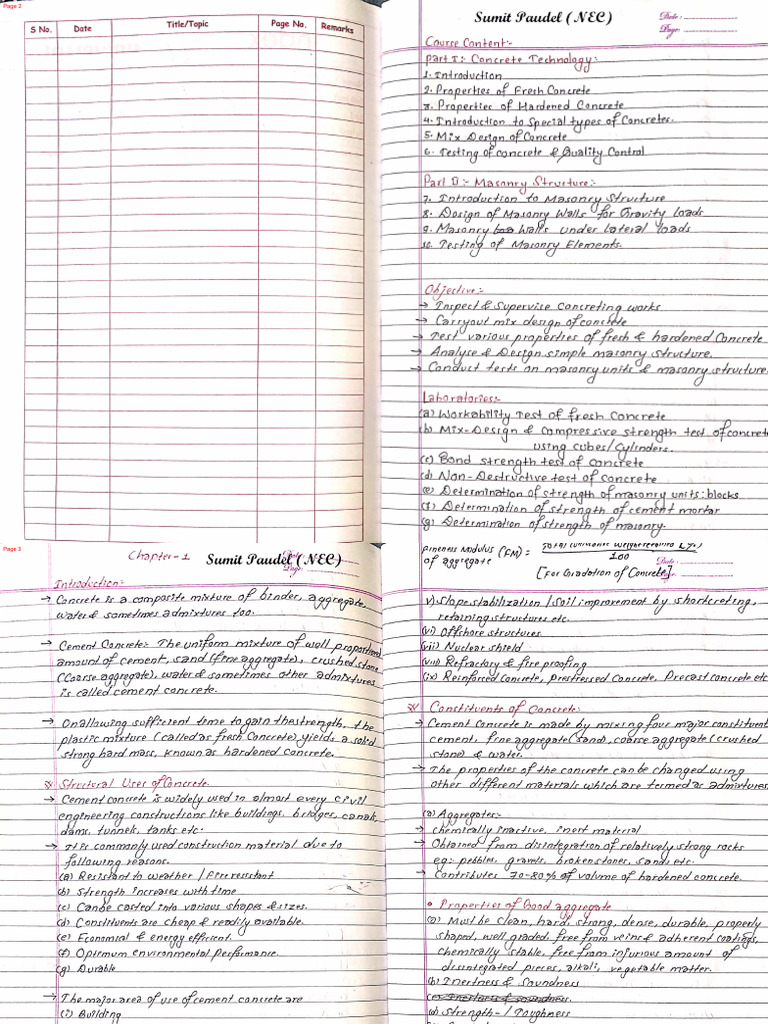 Page 2
S No.
Date
Title/Topic
Page No.
Remarks
Sumit Paudel (NEC)
Date :
Page:
Course Content:-
Part I: Concrete Technology:-
1. Introduction
2. Properties of Fresh Concrete
3. Properties of Hardened Concrete
4. Introduction to Special types of Concretes.
5. Mix Design of Concrete
6. Testing of concrete & Quality Control
Part II:- Masonry Structure:-
7. Introduction to Masonry Structure
8. Design of Masonry Walls for Gravity loads
9. Masonry Walls under Lateral loads
10. Testing of Masonry Elements.
Objective:-
→ Inspect & Supervise Concreting works
→ Carryout mix design of concrete
→ Test various properties of fresh & hardened Concrete
→ Analyse & Design simple masonry structure.
→ Conduct tests on masonry units & masonry structure
Laboratories:-
(a) Workability Test of fresh Concrete
(b) Mix-Design & Compressive strength test of concrete
using cubes/Cylinders.
(c) Bond strength test of concrete
(d) Non-Destructive test of concrete
(e) Determination of strength of masonry units: blocks
(f) Determination of strength of cement mortar
(g) Determination of strength of masonry.
Page 3
Chapter-1
Sumit Paudel (NEC)
Page:
Introduction:-
→ Concrete is a composite mixture of binder, aggregate,
water & sometimes admixtures too.
→ Cement Concrete:- The uniform mixture of well proportioned
amount of cement, sand (fine aggregate), crushed stone
(Coarse aggregate), water & sometimes other admixtures
is called cement concrete.
→ On allowing sufficient time to gain the strength, the
plastic mixture (called as fresh Concrete) yields a solid
strong hard mass, known as hardened concrete.
Structural Uses of Concrete.
→ Cement concrete is widely used in almost every civil
engineering constructions like buildings, bridges, canals,
dams, tunnels, tanks etc.
→ It is commonly used construction material due to
following reasons.
(a) Resistant to weather / Fire resistant
(b) Strength increases with time
(c) Can be casted into various shapes & sizes.
(d) Constituents are cheap & readily available.
(e) Economical & energy efficient.
(f) Optimum environmental Performance.
(g) Durable
→ The major area of use of cement concrete are
(i) Building
Fineness Modulus (FM) =
of aggregate
100
Date :
[For Gradation of Concrete]
v) Slope stabilization / Soil improvement by shortcreting,
retaining structures etc.
(vi) Offshore structures
(vii) Nuclear shield
(viii) Refractory & fire proofing
(ix) Reinforced Concrete, prestressed Concrete, Precast concrete etc
Constituents of Concrete:-
→ Cement Concrete is made by mixing four major constituent
cement, fine aggregate (sand), coarse aggregate (crushed
stone) & water.
→ The properties of the concrete can be changed using
other different materials which are termed as admixtures
(a) Aggregates:-
→ Chemically inactive, inert material
→ Obtained from disintegration of relatively strong rocks
eg:- pebbles, gravels, broken stones, sands etc.
→ Contributes 70-80% of volume of hardened concrete.
• Properties of Good aggregate
(a) Must be clean, hard, strong, dense, durable, properly
shaped, well graded, free from veins & adherent coatings,
chemically stable, free from injurious amount of
disintegrated pieces, alkali, vegetable matter.
(b) Inertness & Soundness
(c) Inertness & soundness.
(d) Strength - / Toughness